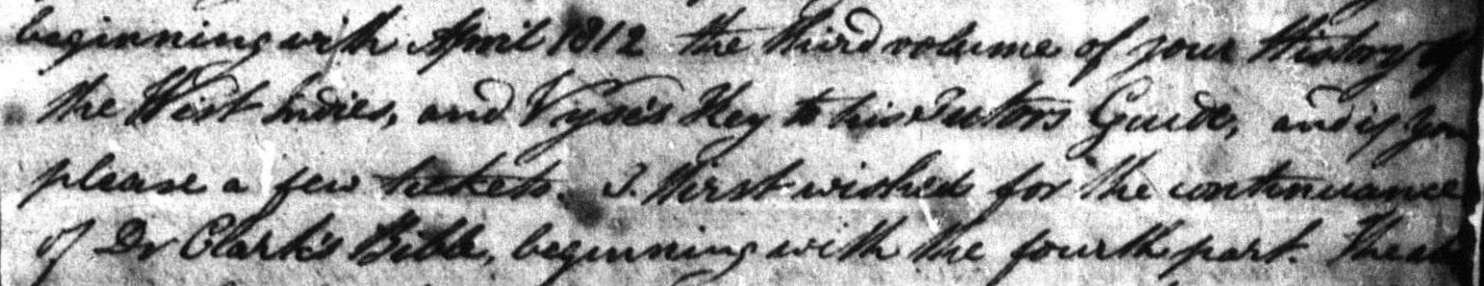 beginning with April 1812 the third volume of your History of
the West Indies, and Vyse's Key to his Tutors Guide, and if you
please a few tickets. I wished for the continuance
of Dr Clark's Bible, beginning with the fourth part.